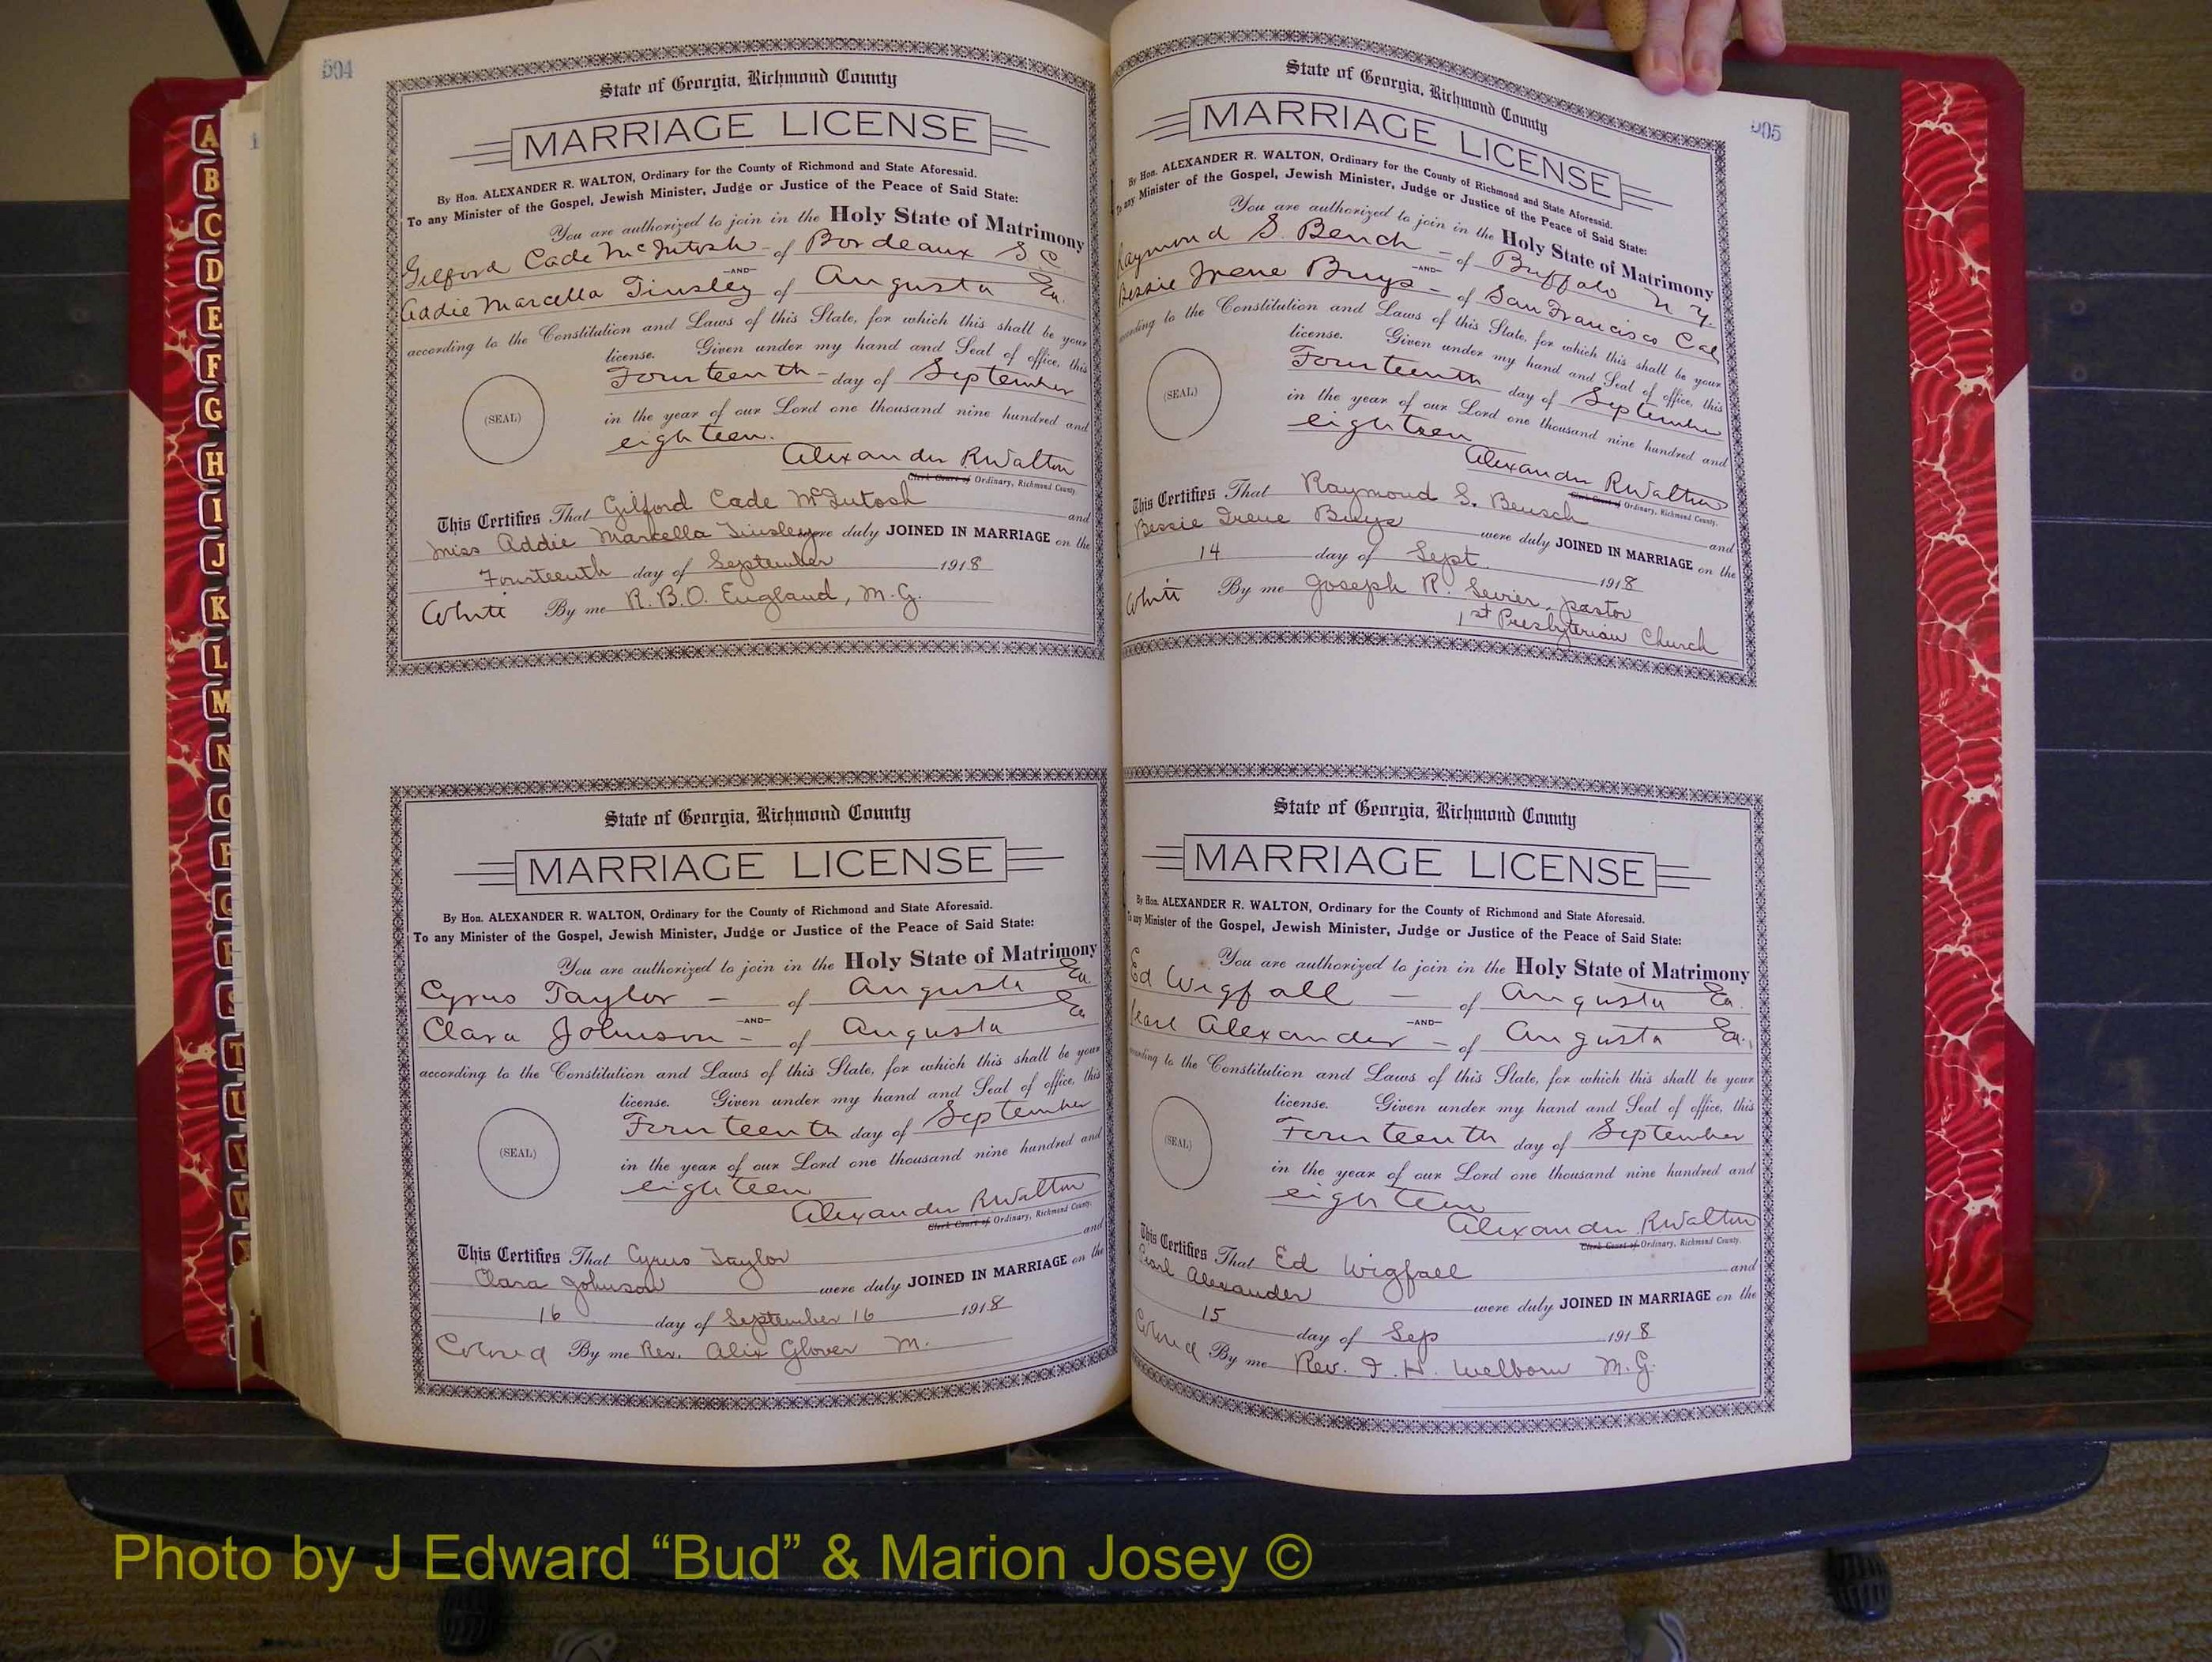 504
State of Georgia, Richmond County
MARRIAGE LICENSE
By Hon. ALEXANDER R. WALTON, Ordinary for the County of Richmond and State Aforesaid.
To any Minister of the Gospel, Jewish Minister, Judge or Justice of the Peace of Said State:
You are authorized to join in the Holy State of Matrimony
Gilford Cade McIntosh - of Bordeaux S C.
—AND—
Addie Marcella Tinsley of Augusta Ga.
according to the Constitution and Laws of this State, for which this shall be your
license. Given under my hand and Seal of office, this
Fourteenth - day of September
(SEAL)
in the year of our Lord one thousand nine hundred and
eighteen.
Alexander R Walton
Clerk Court of Ordinary, Richmond County.
This Certifies That Gilford Cade McIntosh and
Miss Addie Marcella Tinsley were duly JOINED IN MARRIAGE on the
Fourteenth day of September 1918
White By me R. B. O. England, M. G.
State of Georgia, Richmond County
MARRIAGE LICENSE
By Hon. ALEXANDER R. WALTON, Ordinary for the County of Richmond and State Aforesaid.
To any Minister of the Gospel, Jewish Minister, Judge or Justice of the Peace of Said State:
You are authorized to join in the Holy State of Matrimony
Cyrus Taylor - of Augusta Ga.
—AND—
Clara Johnson - of Augusta Ga
according to the Constitution and Laws of this State, for which this shall be your
license. Given under my hand and Seal of office, this
Fourteenth day of September
(SEAL)
in the year of our Lord one thousand nine hundred and
eighteen
Alexander R Walton
Clerk Court of Ordinary, Richmond County.
This Certifies That Cyrus Taylor and
Clara Johnson were duly JOINED IN MARRIAGE on the
16 day of September 16 1918
Colored By me Rev. Alix Glover M.
505
State of Georgia, Richmond County
MARRIAGE LICENSE
By Hon. ALEXANDER R. WALTON, Ordinary for the County of Richmond and State Aforesaid.
To any Minister of the Gospel, Jewish Minister, Judge or Justice of the Peace of Said State:
You are authorized to join in the Holy State of Matrimony
Raymond S. Bench - of Buffalo N. Y.
—AND—
Bessie Irene Buys - of San Francisco Cal
according to the Constitution and Laws of this State, for which this shall be your
license. Given under my hand and Seal of office, this
Fourteenth day of September
(SEAL)
in the year of our Lord one thousand nine hundred and
eighteen
Alexander R Walton
Clerk Court of Ordinary, Richmond County.
This Certifies That Raymond S. Beusch and
Bessie Irene Buys were duly JOINED IN MARRIAGE on the
14 day of Sept. 1918
White By me Joseph R. Sevier, pastor
1st Presbyterian Church
State of Georgia, Richmond County
MARRIAGE LICENSE
By Hon. ALEXANDER R. WALTON, Ordinary for the County of Richmond and State Aforesaid.
To any Minister of the Gospel, Jewish Minister, Judge or Justice of the Peace of Said State:
You are authorized to join in the Holy State of Matrimony
Ed Wigfall - of Augusta Ga.
—AND—
Pearl Alexander - of Augusta Ga.
according to the Constitution and Laws of this State, for which this shall be your
license. Given under my hand and Seal of office, this
Fourteenth day of September
(SEAL)
in the year of our Lord one thousand nine hundred and
eighteen
Alexander R Walton
Clerk Court of Ordinary, Richmond County.
This Certifies That Ed Wigfall and
Pearl Alexander were duly JOINED IN MARRIAGE on the
15 day of Sep 1918
Colored By me Rev. I. H. Welborn M. G.
A
B
C
D
E
F
G
H
I
J
K
L
M
N
O
P
Q
R
S
T
U
V
W
Photo by J Edward “Bud” & Marion Josey ©